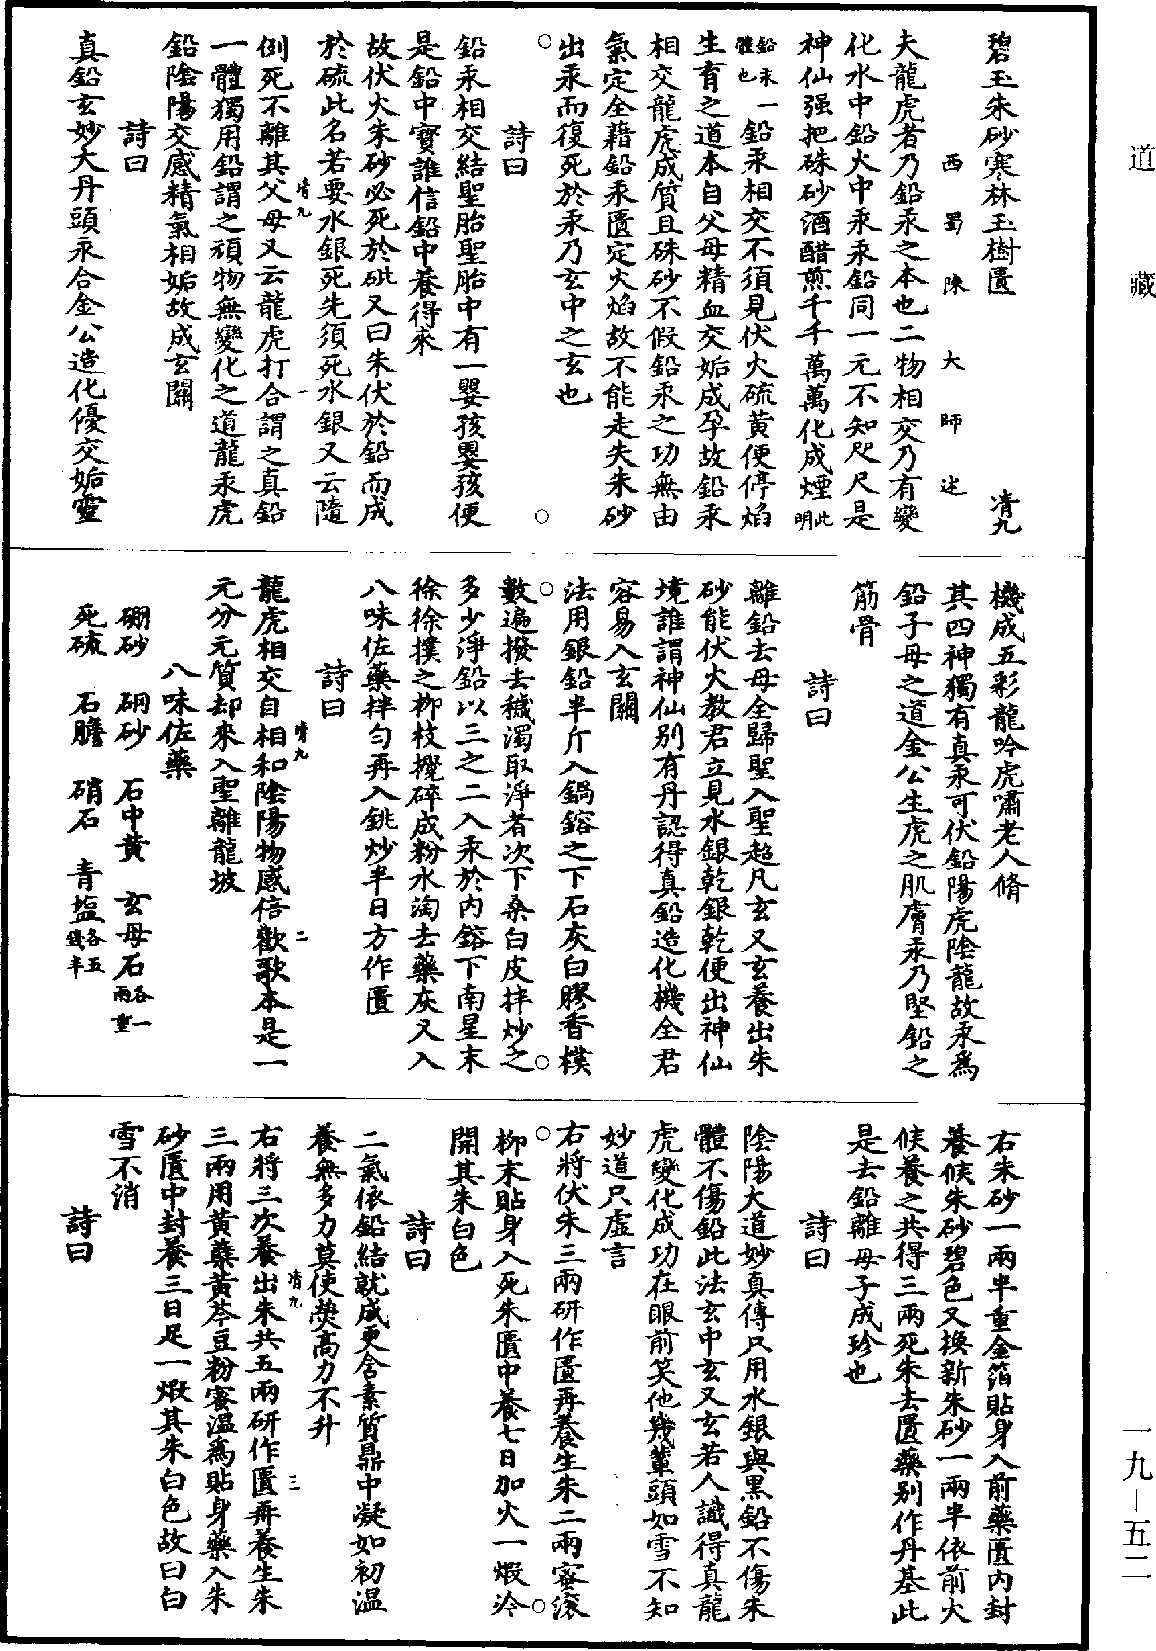 道藏
碧玉朱砂寒林玉樹匱 清九
西蜀陳大師述
夫龍虎者乃鉛汞之本也二物相交乃有變
化水中鉛火中汞汞鉛同一元不知咫尺是
神仙强把硃砂酒醋煎千千萬萬化成煙此明
鉛汞體也一鉛汞相交不須見伏火硫黃便停焰
生育之道本自父母精血交姤成孕故鉛汞
相交龍虎成質且硃砂不假鉛汞之功無由
氣定全藉鉛汞匱定火焰故不能走失朱砂
出汞而復死於汞乃玄中之玄也
詩曰
鉛汞相交結聖胎聖胎中有一嬰孩嬰孩便
是鉛中寶誰信鉛中養得來
故伏火朱砂必死於砒又曰朱伏於鉛而成
於硫此名若要水銀死先須死水銀又云隨
例死不離其父母又云龍虎打合謂之真鉛
一體獨用鉛謂之頑物無變化之道龍汞虎
鉛陰陽交感精氣相姤故成玄關
詩曰
真鉛玄妙大丹頭汞合金公造化優交姤靈
清九 一
機成五彩龍吟虎嘯老人脩
其四神獨有真汞可伏鉛陽虎陰龍故汞為
鉛子母之道金公生虎之肌膚汞乃堅鉛之
筋骨
詩曰
離鉛去母全歸聖入聖超凡玄又玄養出朱
砂能伏火教君立見水銀乾銀乾便出神仙
境誰謂神仙別有丹認得真鉛造化機全君
容易入玄關
法用銀鉛半斤入鍋鎔之下石灰白膠香樸
數遍撥去穢濁取淨者次下桑白皮拌炒之
多少淨鉛以三之二入汞於內鎔下南星末
徐徐撲之柳枝攪碎成粉水淘去藥灰又入
八味佐藥拌勻再入銚炒半日方作匱
詩曰
龍虎相交自相和陰陽物感倍歡歌本是一
元分元質却來入聖離龍坡
八味佐藥
硼砂 硇砂 石中黃 玄母石各一兩重
死硫 石膽 硝石 青塩各五錢半
清九 二
右朱砂一兩半重金箔貼身入前藥匱內封
養候朱砂碧色又換新朱砂一兩半依前火
候養之共得三兩死朱去匱藥別作丹基此
是去鉛離母子成珍也
詩曰
陰陽大道妙真傳只用水銀與黑鉛不傷朱
體不傷鉛此法玄中玄又玄若人識得真龍
虎變化成功在眼前笑他幾輩頭如雪不知
妙道只虛言
右將伏朱三兩研作匱再養生朱二兩蜜滾
柳末貼身入死朱匱中養七日加火一煅冷
開其朱白色
詩曰
二氣依鉛結就成更含素質鼎中凝如初溫
養無多力莫使熒高力不升
右將三次養出朱共五兩研作匱再養生朱
三兩用黃蘗黃芩豆粉蜜溫為貼身藥入朱
砂匱中封養三日足一煅其朱白色故曰白
雪不消
詩曰
清九 三
一九－五二